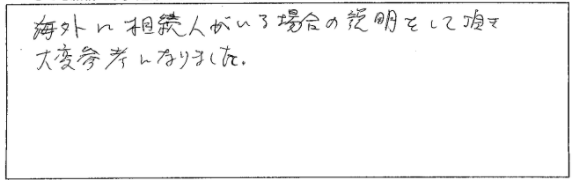 海外に相続人がいる場合の説明をして頂き
大変参考になりました。